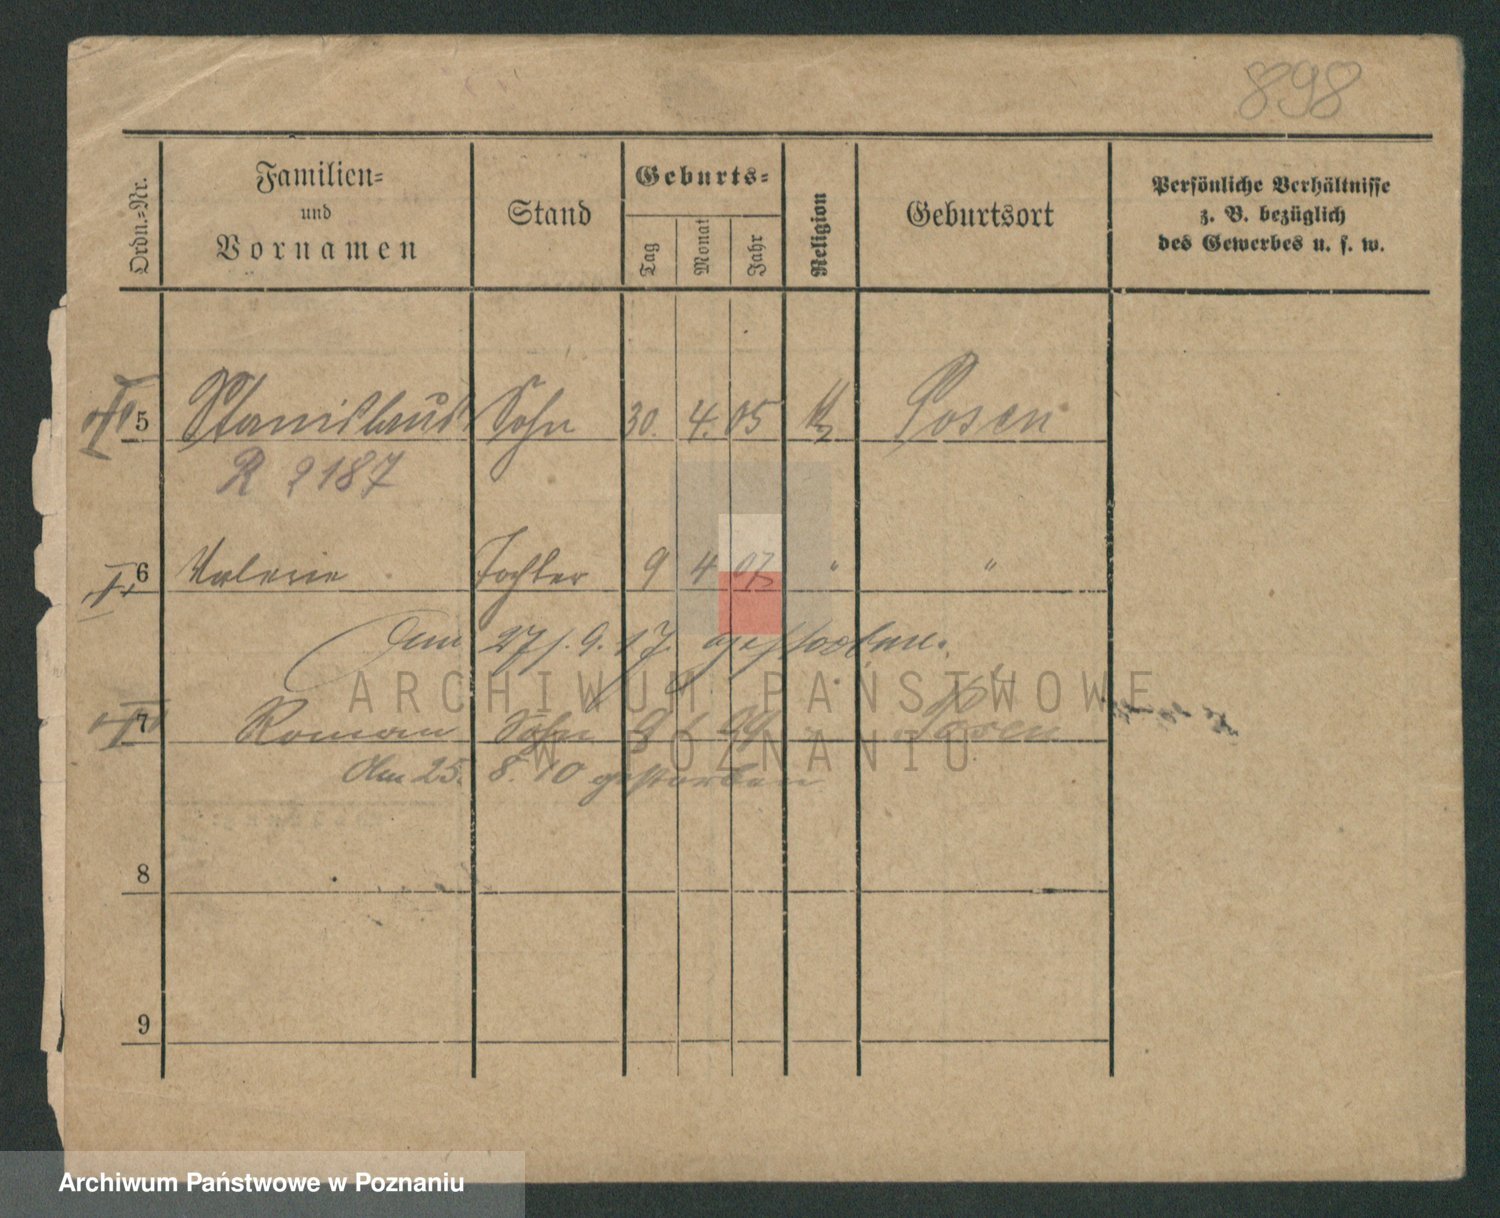 898
Ordn.=Nr.
Familien=
und
Vornamen
Stand
Geburts=
Tag
Monat
Jahr
Religion
Geburtsort
Persönliche Verhältnisse
z. B. bezüglich
des Gewerbes u. s. w.
5 Stanislaus Sohn 30. 4. 05 k Posen
R 2187
6 Valerie Tochter 9 4 07 " "
Am 27/. 9. 17. gestorben.
7 Roman Sohn 9 Posen
Am 25. 8. 10 gestorben
8
9
ARCHIWUM PAŃSTWOWE
W POZNANIU
Archiwum Państwowe w Poznaniu